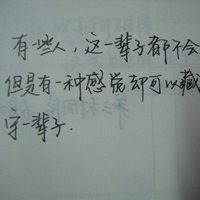 有一些人，这一辈子都不会
但是有一种感觉却可以藏
守一辈子．